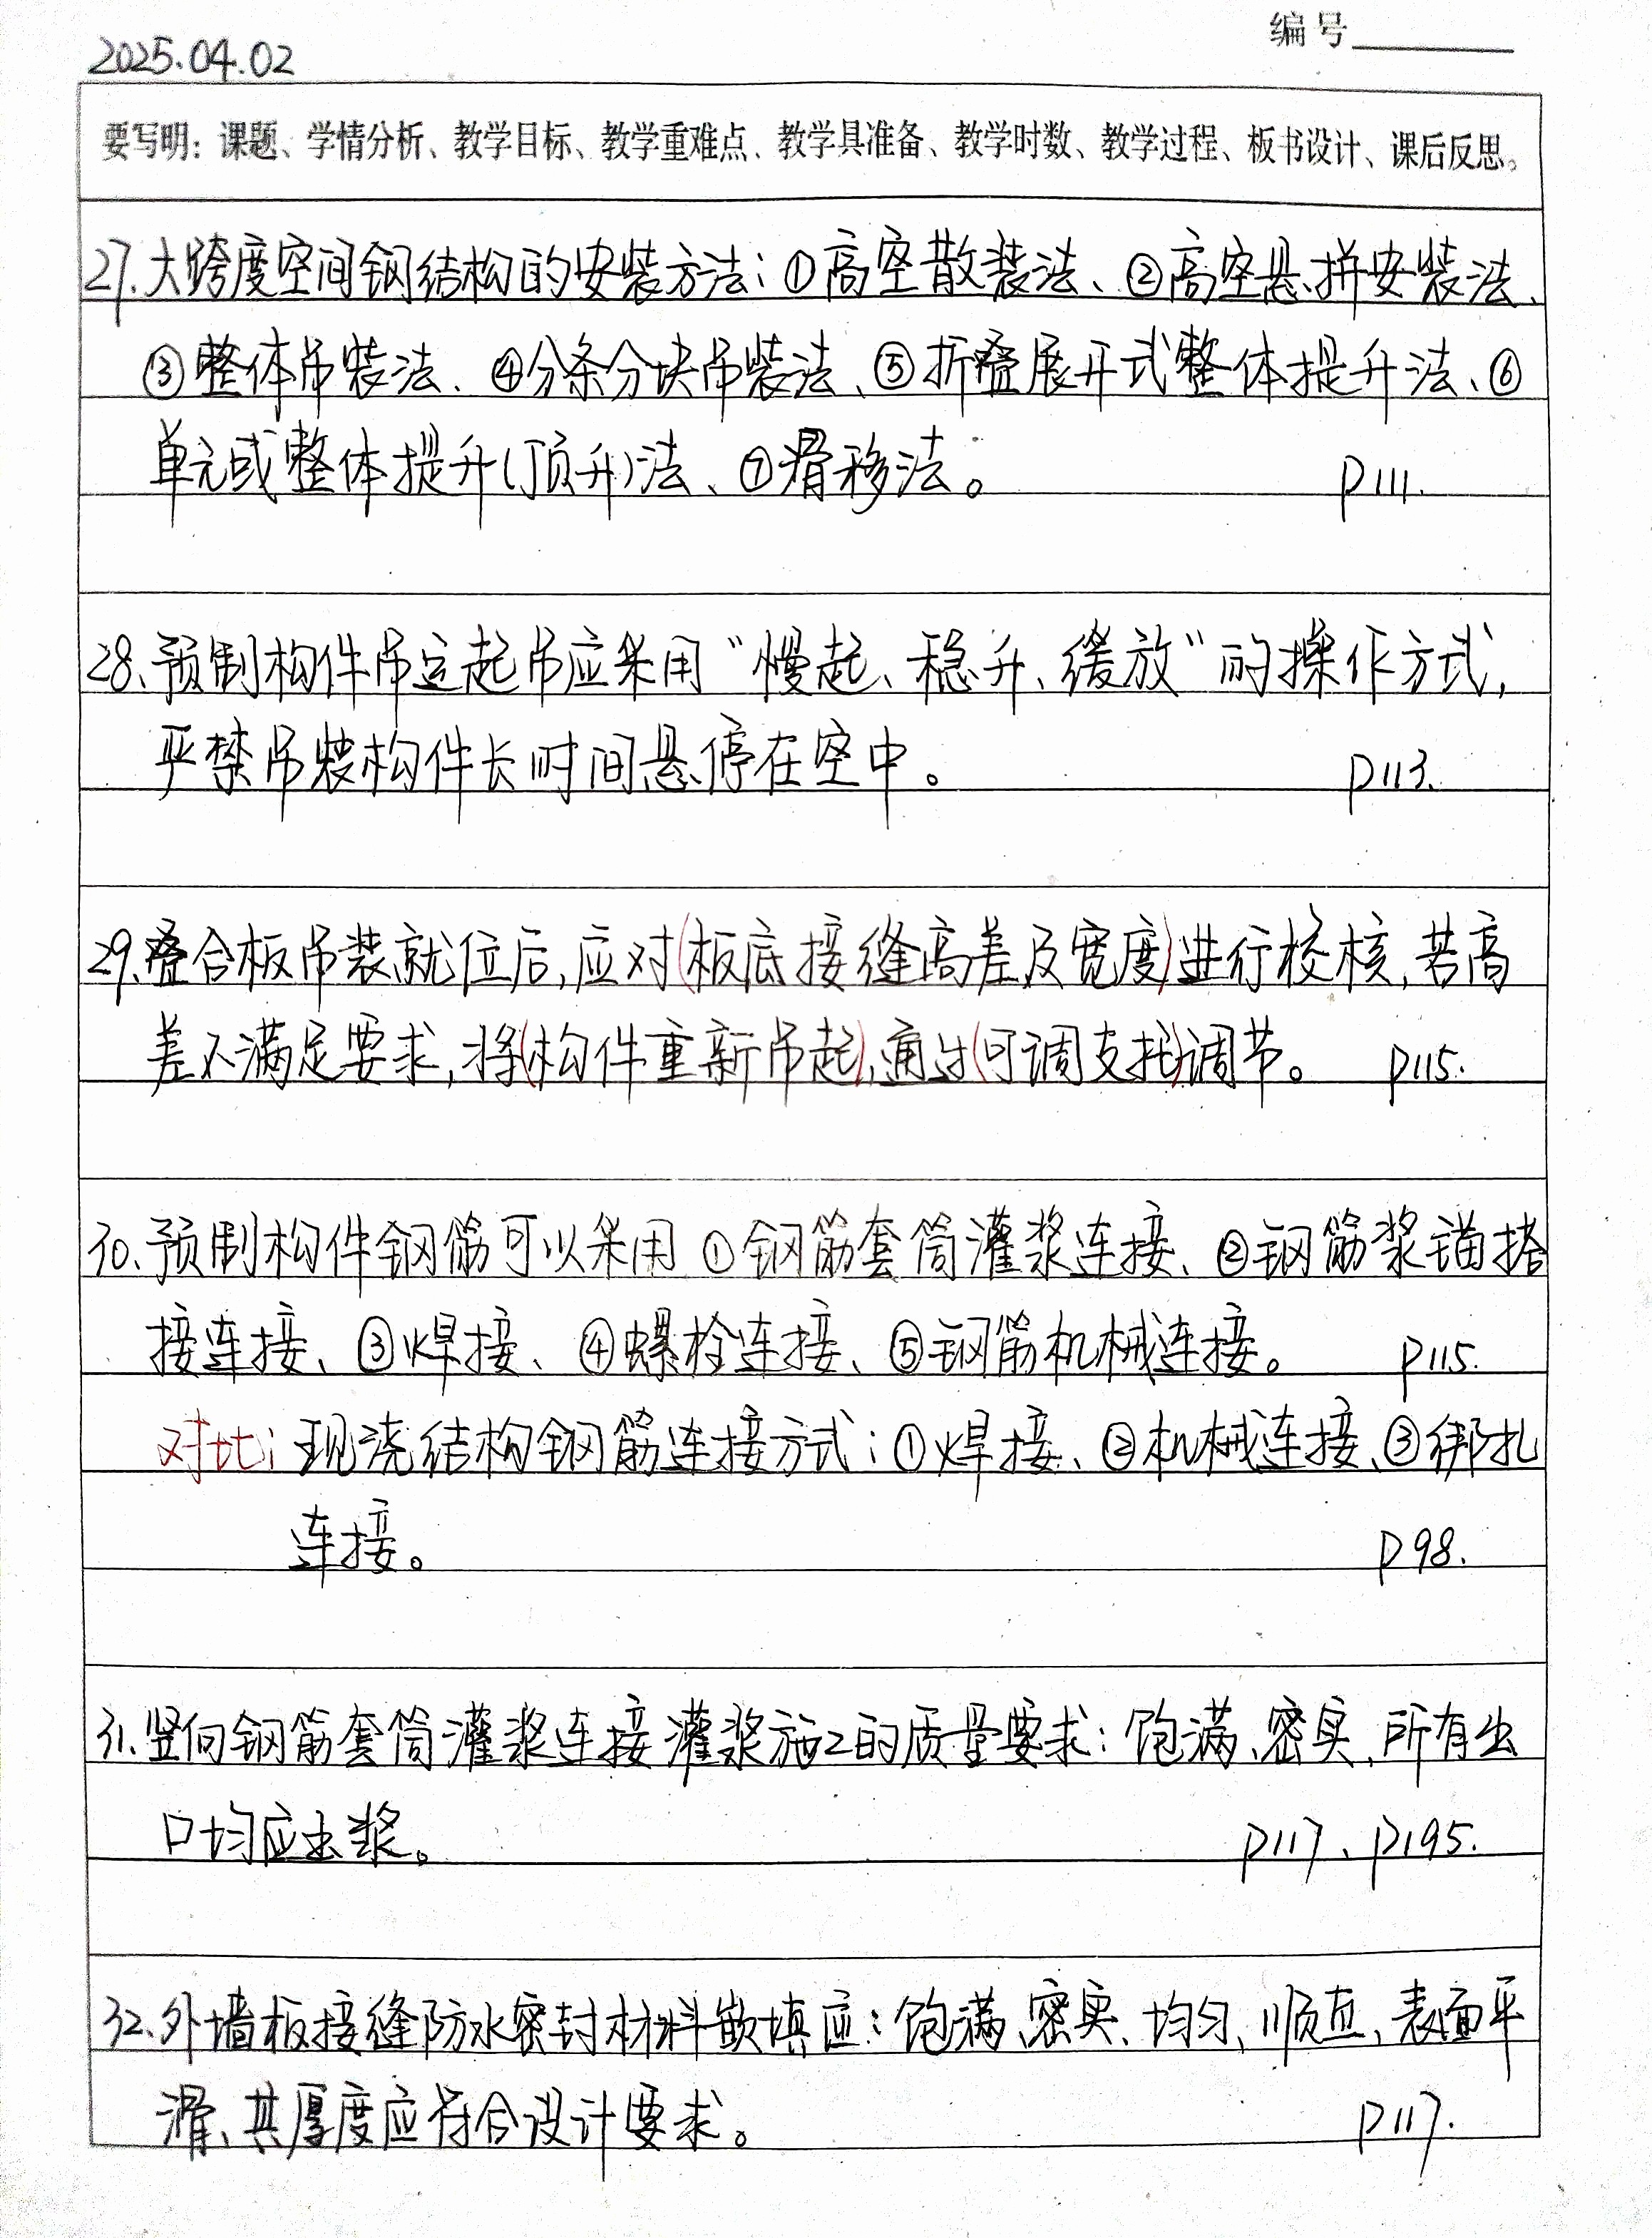 编号
2025.04.02
要写明：课题、学情分析、教学目标、教学重难点、教学具准备、教学时数、教学过程、板书设计、课后反思。
27.大跨度空间钢结构的安装方法：①高空散装法、②高空悬拼安装法、
③整体吊装法、④分条分块吊装法、⑤折叠展开式整体提升法、⑥
单元或整体提升(顶升)法、⑦滑移法。 P111.
28.预制构件吊运起吊应采用“慢起、稳升、缓放”的操作方式，
严禁吊装构件长时间悬停在空中。 P113.
29.叠合板吊装就位后，应对(板底接缝高差及宽度)进行校核，若高
差不满足要求，将(构件重新吊起)，通过(可调支托)调节。 P115.
30.预制构件钢筋可以采用①钢筋套筒灌浆连接、②钢筋浆锚搭
接连接、③焊接、④螺栓连接、⑤钢筋机械连接。 P115.
对比：现浇结构钢筋连接方式：①焊接、②机械连接、③绑扎
连接。 P98.
31.竖向钢筋套筒灌浆连接灌浆施工的质量要求：饱满、密实，所有出
口均应出浆。 P117、P195.
32.外墙板接缝防水密封材料嵌填应：饱满、密实、均匀、顺直、表面平
滑、其厚度应符合设计要求。 P117.